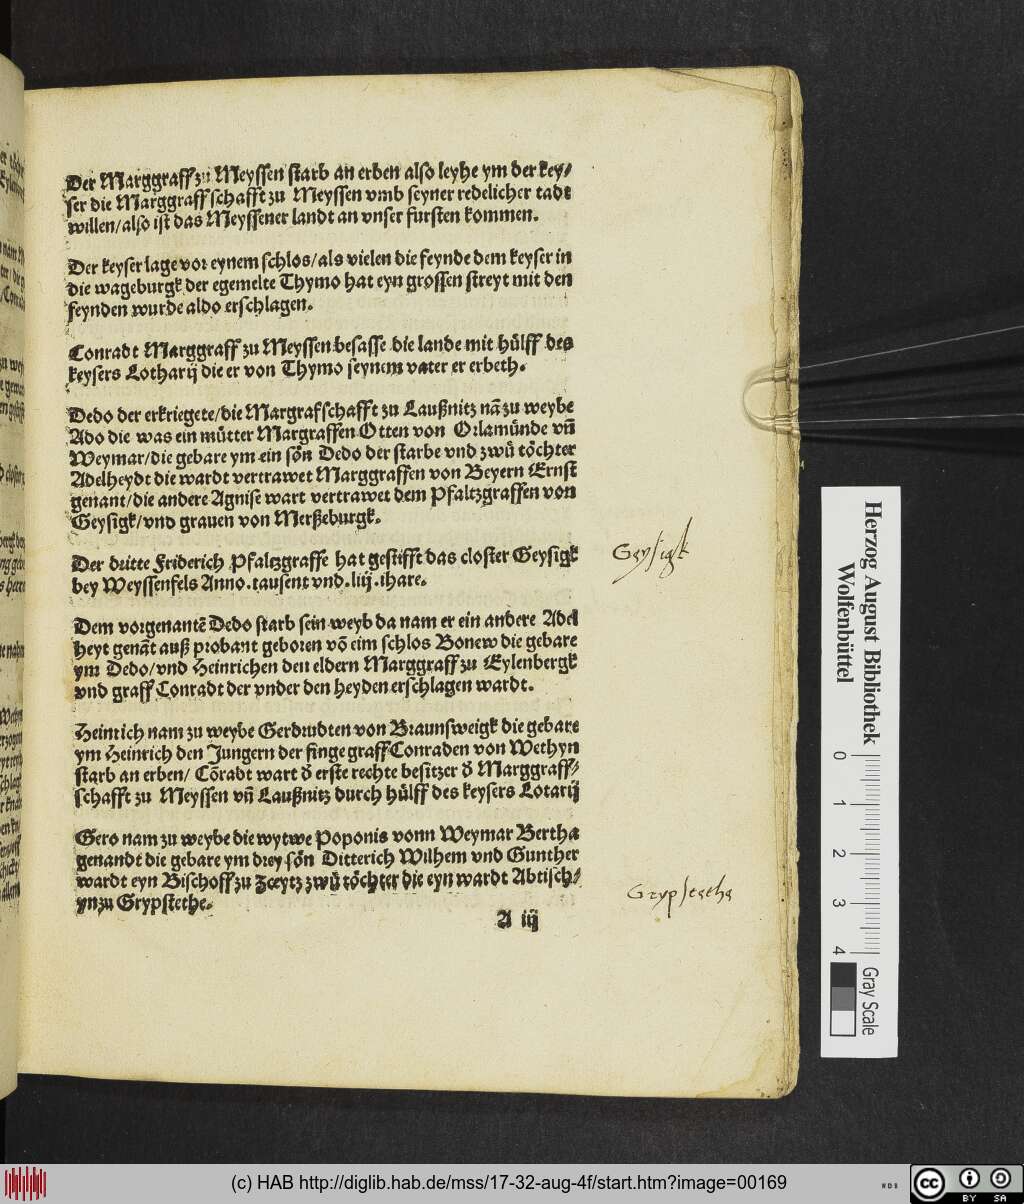 Der Marggraff zu Meyssen starb an erben also leyhe ym der key/
ser die Marggraff schafft zu Meyssen vmb seyner redelicher tadt
willen/also ist das Meyssener landt an vnser fursten kommen.
Der keyser lage vor eynem schlos/als vielen die feynde dem keyser in
die wageburgk der egemelte Thymo hat eyn grossen streyt mit den
feynden wurde aldo erschlagen.
Conradt Marggraff zu Meyssen besasse die lande mit hůlff des
keysers Lotharij die er von Thymo seynem vater er erbeth.
Dedo der erkriegete/die Margrafschafft zu Laußnitz nā zu weybe
Ado die was ein můtter Margraffen Otten von Orlamünde vn̄
Weymar/die gebare ym ein sön Dedo der starbe vnd zwů töchter
Adelheydt die wardt vertrawet Marggraffen von Beyern Ernst
genant/die andere Agnise wart vertrawet dem Pfaltzgraffen von
Geysigk/vnd grauen von Merßeburgk.
Der dritte Friderich Pfaltzgraffe hat gestifft das closter Geysigk
bey Weyssenfels Anno. tausent vnd. liij. ihare.
Geysigk
Dem vorgenantē Dedo starb sein weyb da nam er ein andere Adel
heyt genāt auß probant geboren vō eim schlos Bonew die gebare
ym Dedo/vnd Heinrichen den eldern Marggraff zu Eylenbergk
vnd graff Conradt der vnder den heyden erschlagen wardt.
Heinrich nam zu weybe Gerdrudten von Braunsweigk die gebare
ym Heinrich den Jungern der finge graff Conraden von Wethyn
starb an erben/ Cōradt wart d̕ erste rechte besitzer d̕ Marggraff/
schafft zu Meyssen vn̄ Laußnitz durch hůlff des keysers Lotarij
Gero nam zu weybe die wytwe Poponis vonn Weymar Bertha
genandt die gebare ym drey sön Ditterich Wilhem vnd Gunther
wardt eyn Bischoff zu Zceytz zwů töchter die eyn wardt Abtisch/
yn zu Grypstethe.
Grypstethe
A iij
Herzog August Bibliothek
Wolfenbüttel
0 1 2 3 4
Gray Scale
(c) HAB http://diglib.hab.de/mss/17-32-aug-4f/start.htm?image=00169
WDB
cc BY SA